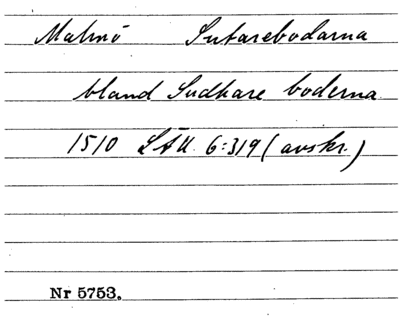 Malmö Sutarebodarna
bland Sudhare boderna
1510 LÄU. 6:319 (avskr.)
Nr 5753.